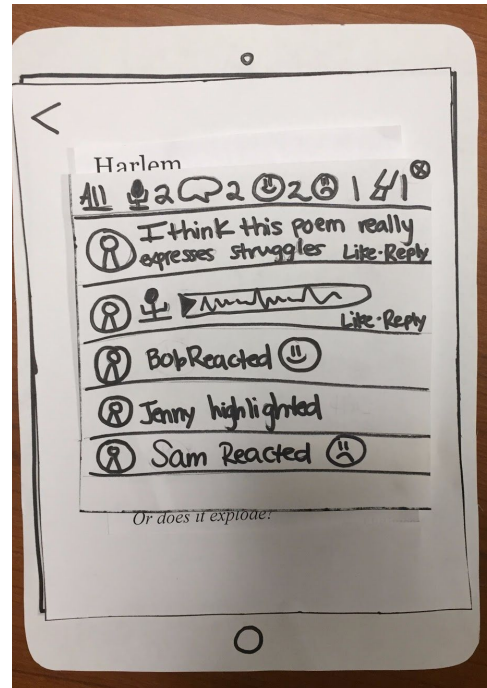 Harlem
All 2 2 2 1 1
I think this poem really
expresses struggles Like·Reply
Like·Reply
Bob Reacted
Jenny highlighted
Sam Reacted
Or does it explode?